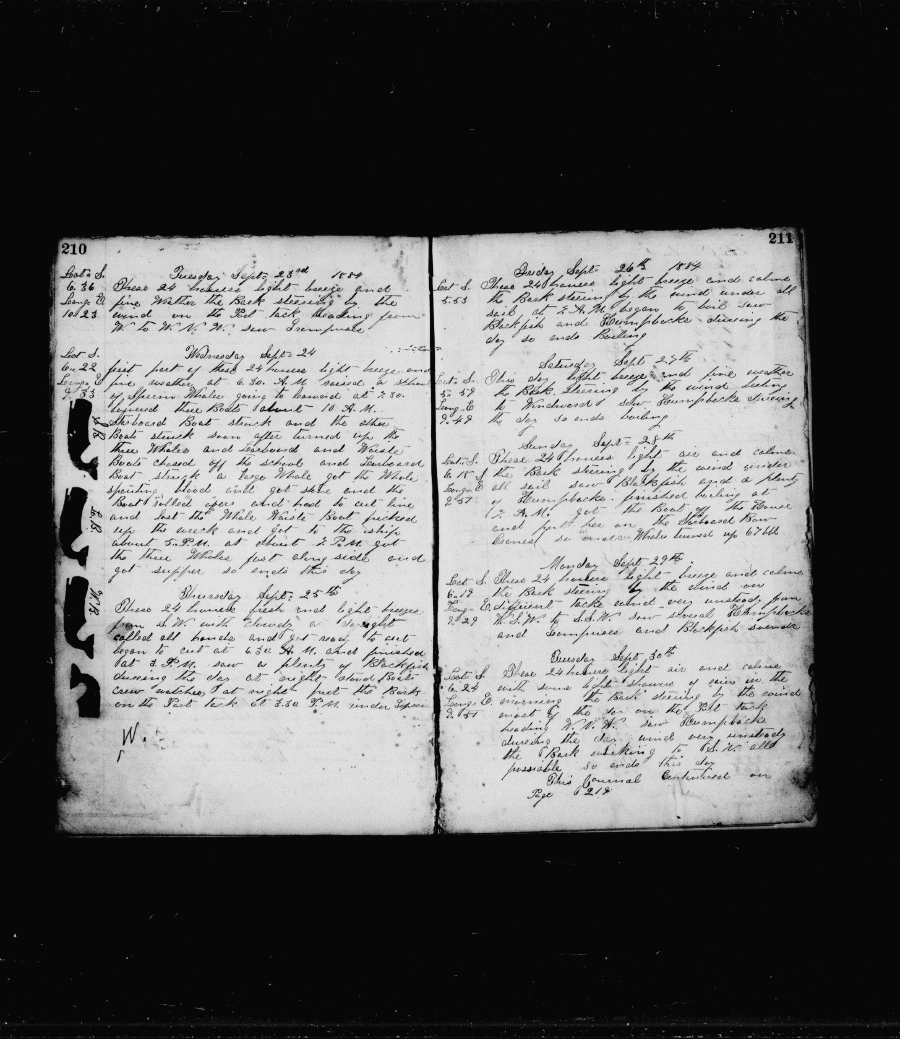 210
Tuesday Sept- 23rd 1884
Lat= S.
6.36
Long= E
10.23
These 24 houres light breeze and
fine Wather the Bark steering by the
wind on the Port tack heading from
W. to W.N.W. saw Grampuse
Wednesday Sept= 24
Lat S.
6.22
Long= E
9.33
first part of these 24 houres light breeze and
fine weather at 6.30. A.M. raised a school
of Sperm Whales going to
lowered three Boats about 10 A.M.
Starboard Boat struck and the other
Boats struck soon after turned up the
three Whales and Larboard and Waiste
Boats chased off the school and Larboard
Boat struck a large Whale got the Whale
spouting blood and got and the
Boat rolled over and had to cut line
and lost the Whale Waiste Boat picked
up the wreck and got to the ship
about 5. P.M. at about 7. P.M. got
the three Whales fast along side and
got supper so ends this day
S.B.
L.B.
W.B.
Thursday Sept- 25th
These 24 houres fresh and light breeze
from S.W. with cloudy
called all hands and got ready to cut
began to cut at 6.30. A.M. and finished
at 3. P.M. saw a plenty of Blackfish
dureing the day at night stand Boats
Crew watches at night put the Bark
on the Port tack at 3.30 P.M. under
W.
211
Friday Sept- 26th 1884
Lat S.
5.53
These 24 houres light breeze and calms
the Bark steering by the wind under all
sail at 7. A.M. began to boil saw
Blackfish and Humpbacks dureing the
day so ends Boiling
Saturday Sept 27th
Lat= S.
5.59
Long- E
9.49
This day light breeze and fine weather
the Bark steering by the wind
to Windward saw Humpbacks dureing
the day so ends boiling
Sunday Sept- 28th
Lat= S.
6.18
Long= E
9.51
These 24 houres light air and calms
the Bark steering by the wind under
all sail saw Blackfish and a plenty
of Humpbacks finished boiling at
A.M. got the Boat off the House
and put her on the Starboard Bow
so ends Whales turned up 67 bbl
Monday Sept 29th
Lat S.
6.19
Long- E
9.29
These 24 houres light breeze and calms
the Bark steering by the wind on
different tacks wind very unstedy from
W.S.W. to S.S.W. saw several Humpbacks
and Grampuses and Blackfish
Tuesday Sept 30th
Lat= S
6.24
Long= E.
9.51
These 24 houres light air and calms
with some light showers of rain in the
morning the Bark steering by the wind
most of the day on the Port tack
heading W.N.W. saw Humpbacks
dureing the day wind very unstedy
the Bark working to S.W. all
possiable so ends this day
This Journal Continued on
Page 218